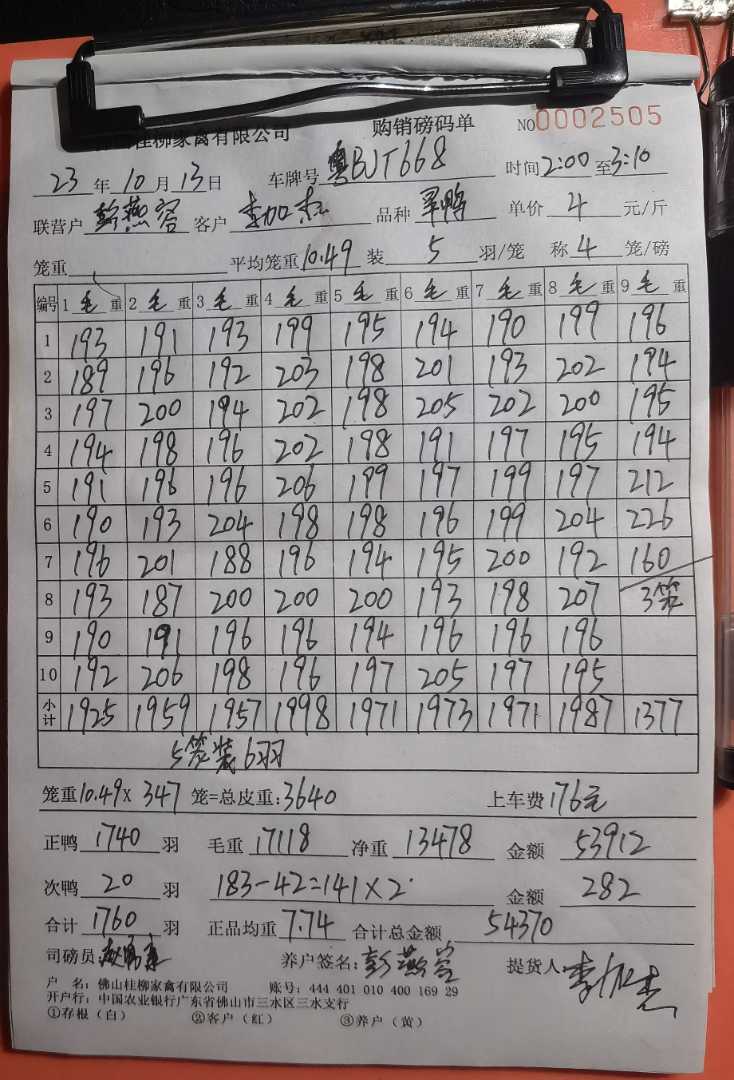 桂柳家禽有限公司 购销磅码单 NO0002505
23年10月13日 车牌号 粤BJT668 时间2:00至3:10
联营户 彭燕容 客户 李加杰 品种 旱鸭 单价 4 元/斤
笼重 平均笼重10.49 装 5 羽/笼 称 4 笼/磅
编号 1毛重 2毛重 3毛重 4毛重 5毛重 6毛重 7毛重 8毛重 9毛重
1 193 191 193 199 195 194 190 199 196
2 189 196 192 203 198 201 193 202 194
3 197 200 194 202 198 205 202 200 195
4 194 198 196 202 198 191 197 195 194
5 191 196 196 206 199 197 199 197 212
6 190 193 204 198 198 196 199 204 226
7 196 201 188 196 194 195 200 192 160
8 193 187 200 200 200 193 198 207 3笼
9 190 191 196 196 194 196 196 196
10 192 206 198 196 197 205 197 195
小计 1925 1959 1957 1998 1971 1973 1971 1987 1377
5笼装6羽
笼重10.49X 347 笼=总皮重:3640 上车费176元
正鸭 1740 羽 毛重 17118 净重 13478 金额 53912
次鸭 20 羽 183-42=141X2 金额 282
合计 1760 羽 正品均重 7.74 合计总金额 54370
司磅员 养户签名:彭燕容 提货人 李加杰
户 名:佛山桂柳家禽有限公司 账号:444 401 010 400 169 29
开户行:中国农业银行广东省佛山市三水区三水支行
①存根(白) ②客户(红) ③养户(黄)